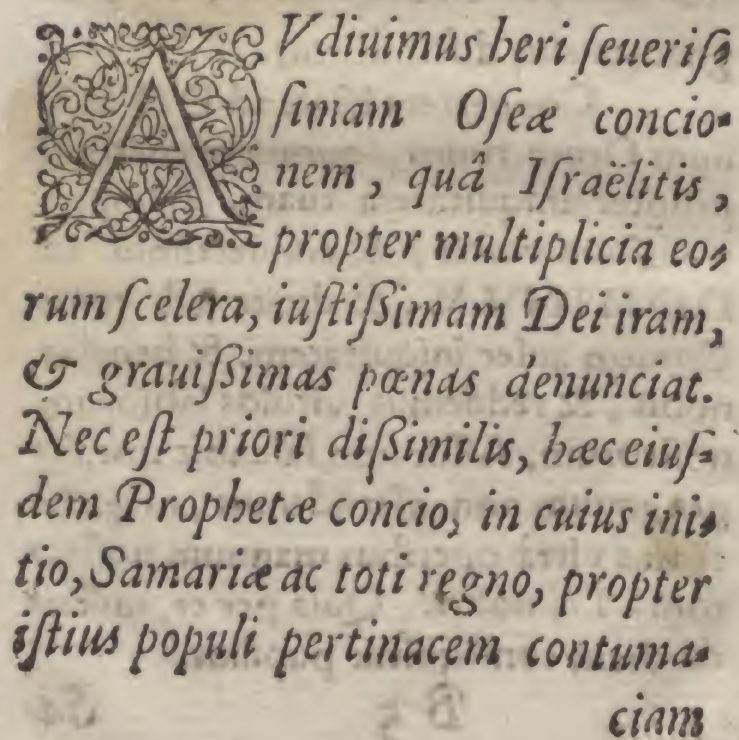 AVdiuimus heri ſeueriſ-
ſimam Oſeæ concio-
nem, quâ Iſraëlitis,
propter multiplicia eo-
rum ſcelera, iuſtiſsimam Dei iram,
& grauiſsimas pœnas denunciat.
Nec eſt priori diſsimilis, hæc eiuſ-
dem Prophetæ concio, in cuius ini-
tio, Samariæ ac toti regno, propter
iſtius populi pertinacem contuma-
ciam